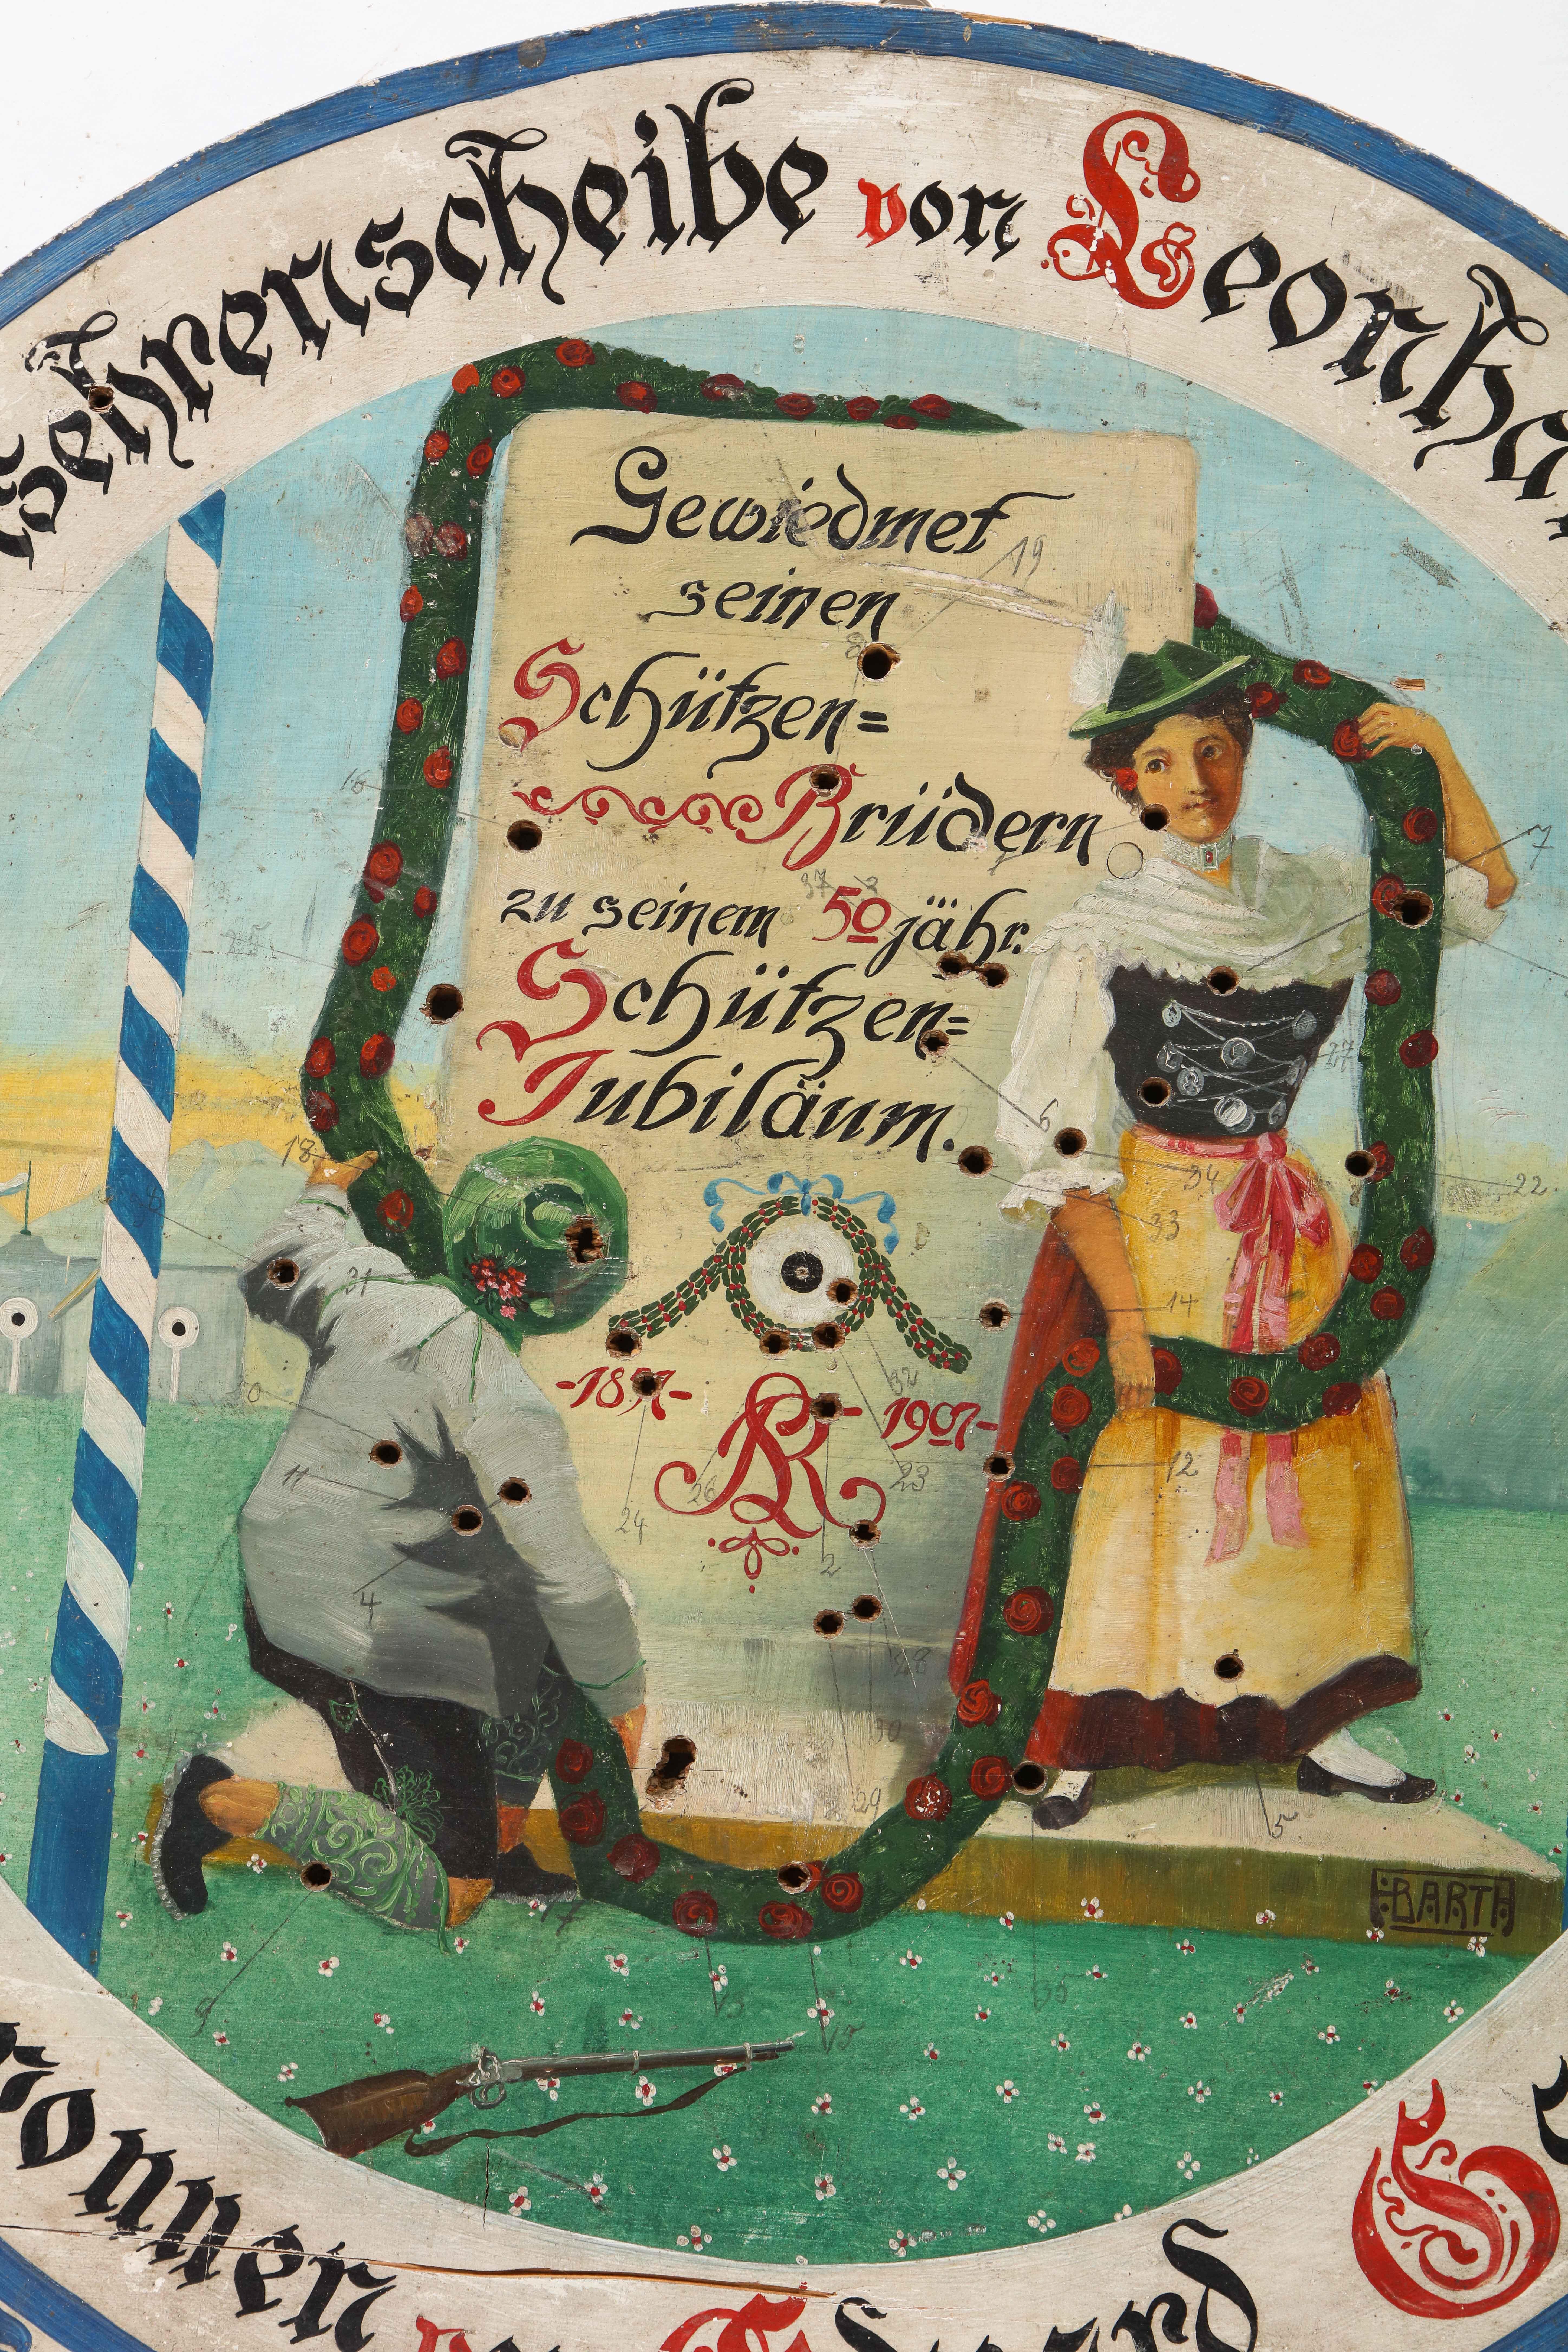 Gehrenscheibe von Leonha
Gewiedmet
seinen
Schützen=
Brüdern
zu seinem 50 jähr.
Schützen=
Jubiläum.
-1857- - 1907-
LR
F. BARTH
onnen von Eduard S
19
16
37
3
7
27
6
18
34
22
33
31
14
32
12
23
26
24
11
2
4
28
30
29
5
17
9
13
15
35